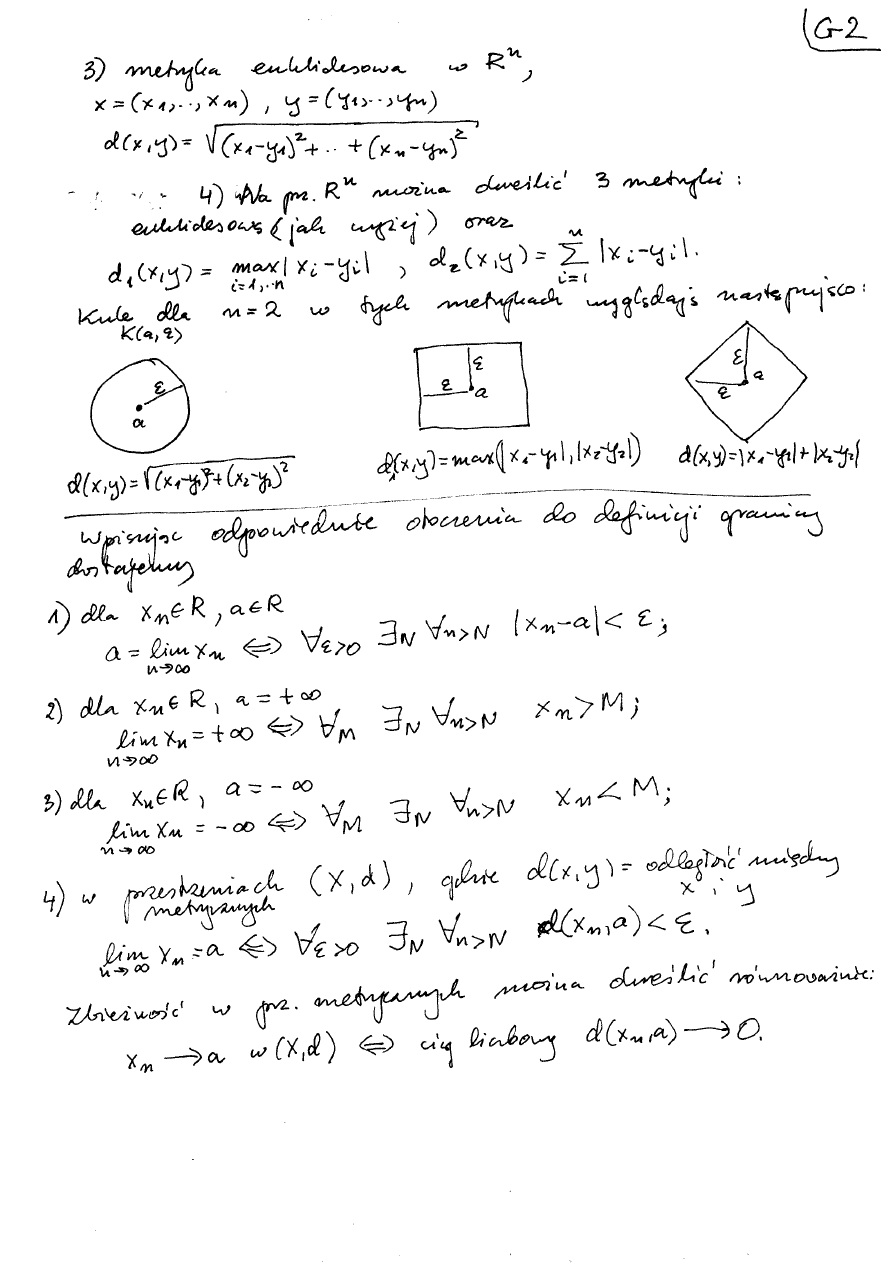 G-2
3) metryka euklidesowa w Rⁿ,
x=(x₁,..,xₙ), y=(y₁,..,yₙ)
d(x,y)= √((x₁-y₁)²+..+(xₙ-yₙ)²)
4) Na prz. Rⁿ można określić 3 metryki:
euklidesową (jak wyżej) oraz
d₁(x,y)= max|xᵢ-yᵢ| , d₂(x,y)= Σ |xᵢ-yᵢ|.
i=1,..n n i=1
Kule dla n=2 w tych metrykach wyglądają następująco:
K(a,ε)
ε a
ε ε a
ε ε a
d(x,y)=√((x₁-y₁)²+(x₂-y₂)²)
d₁(x,y)=max(|x₁-y₁|,|x₂-y₂|)
d(x,y)=|x₁-y₁|+|x₂-y₂|
Wpisując odpowiednie otoczenia do definicji granicy
dostajemy
1) dla xₙ∈R, a∈R
a = lim xₙ ⇔ ∀ε>0 ∃N ∀n>N |xₙ-a|< ε;
n→∞
2) dla xₙ∈R, a=+∞
lim xₙ=+∞ ⇔ ∀M ∃N ∀n>N xₙ>M;
n→∞
3) dla xₙ∈R, a=-∞
lim xₙ = -∞ ⇔ ∀M ∃N ∀n>N xₙ< M;
n→∞
4) w przestrzeniach (X,d), gdzie d(x,y)= odległość między
metrycznych x i y
lim xₙ=a ⇔ ∀ε>0 ∃N ∀n>N d(xₙ,a)<ε.
n→∞
Zbieżność w prz. metrycznych można określić równoważnie:
xₙ →a w (X,d) ⇔ ciąg liczbowy d(xₙ,a)→0.